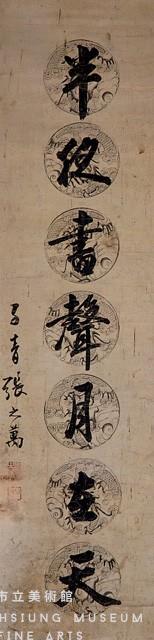 半夜書聲月在天
子青張之萬
市立美術館
HSIUNG MUSEUM
FINE ARTS